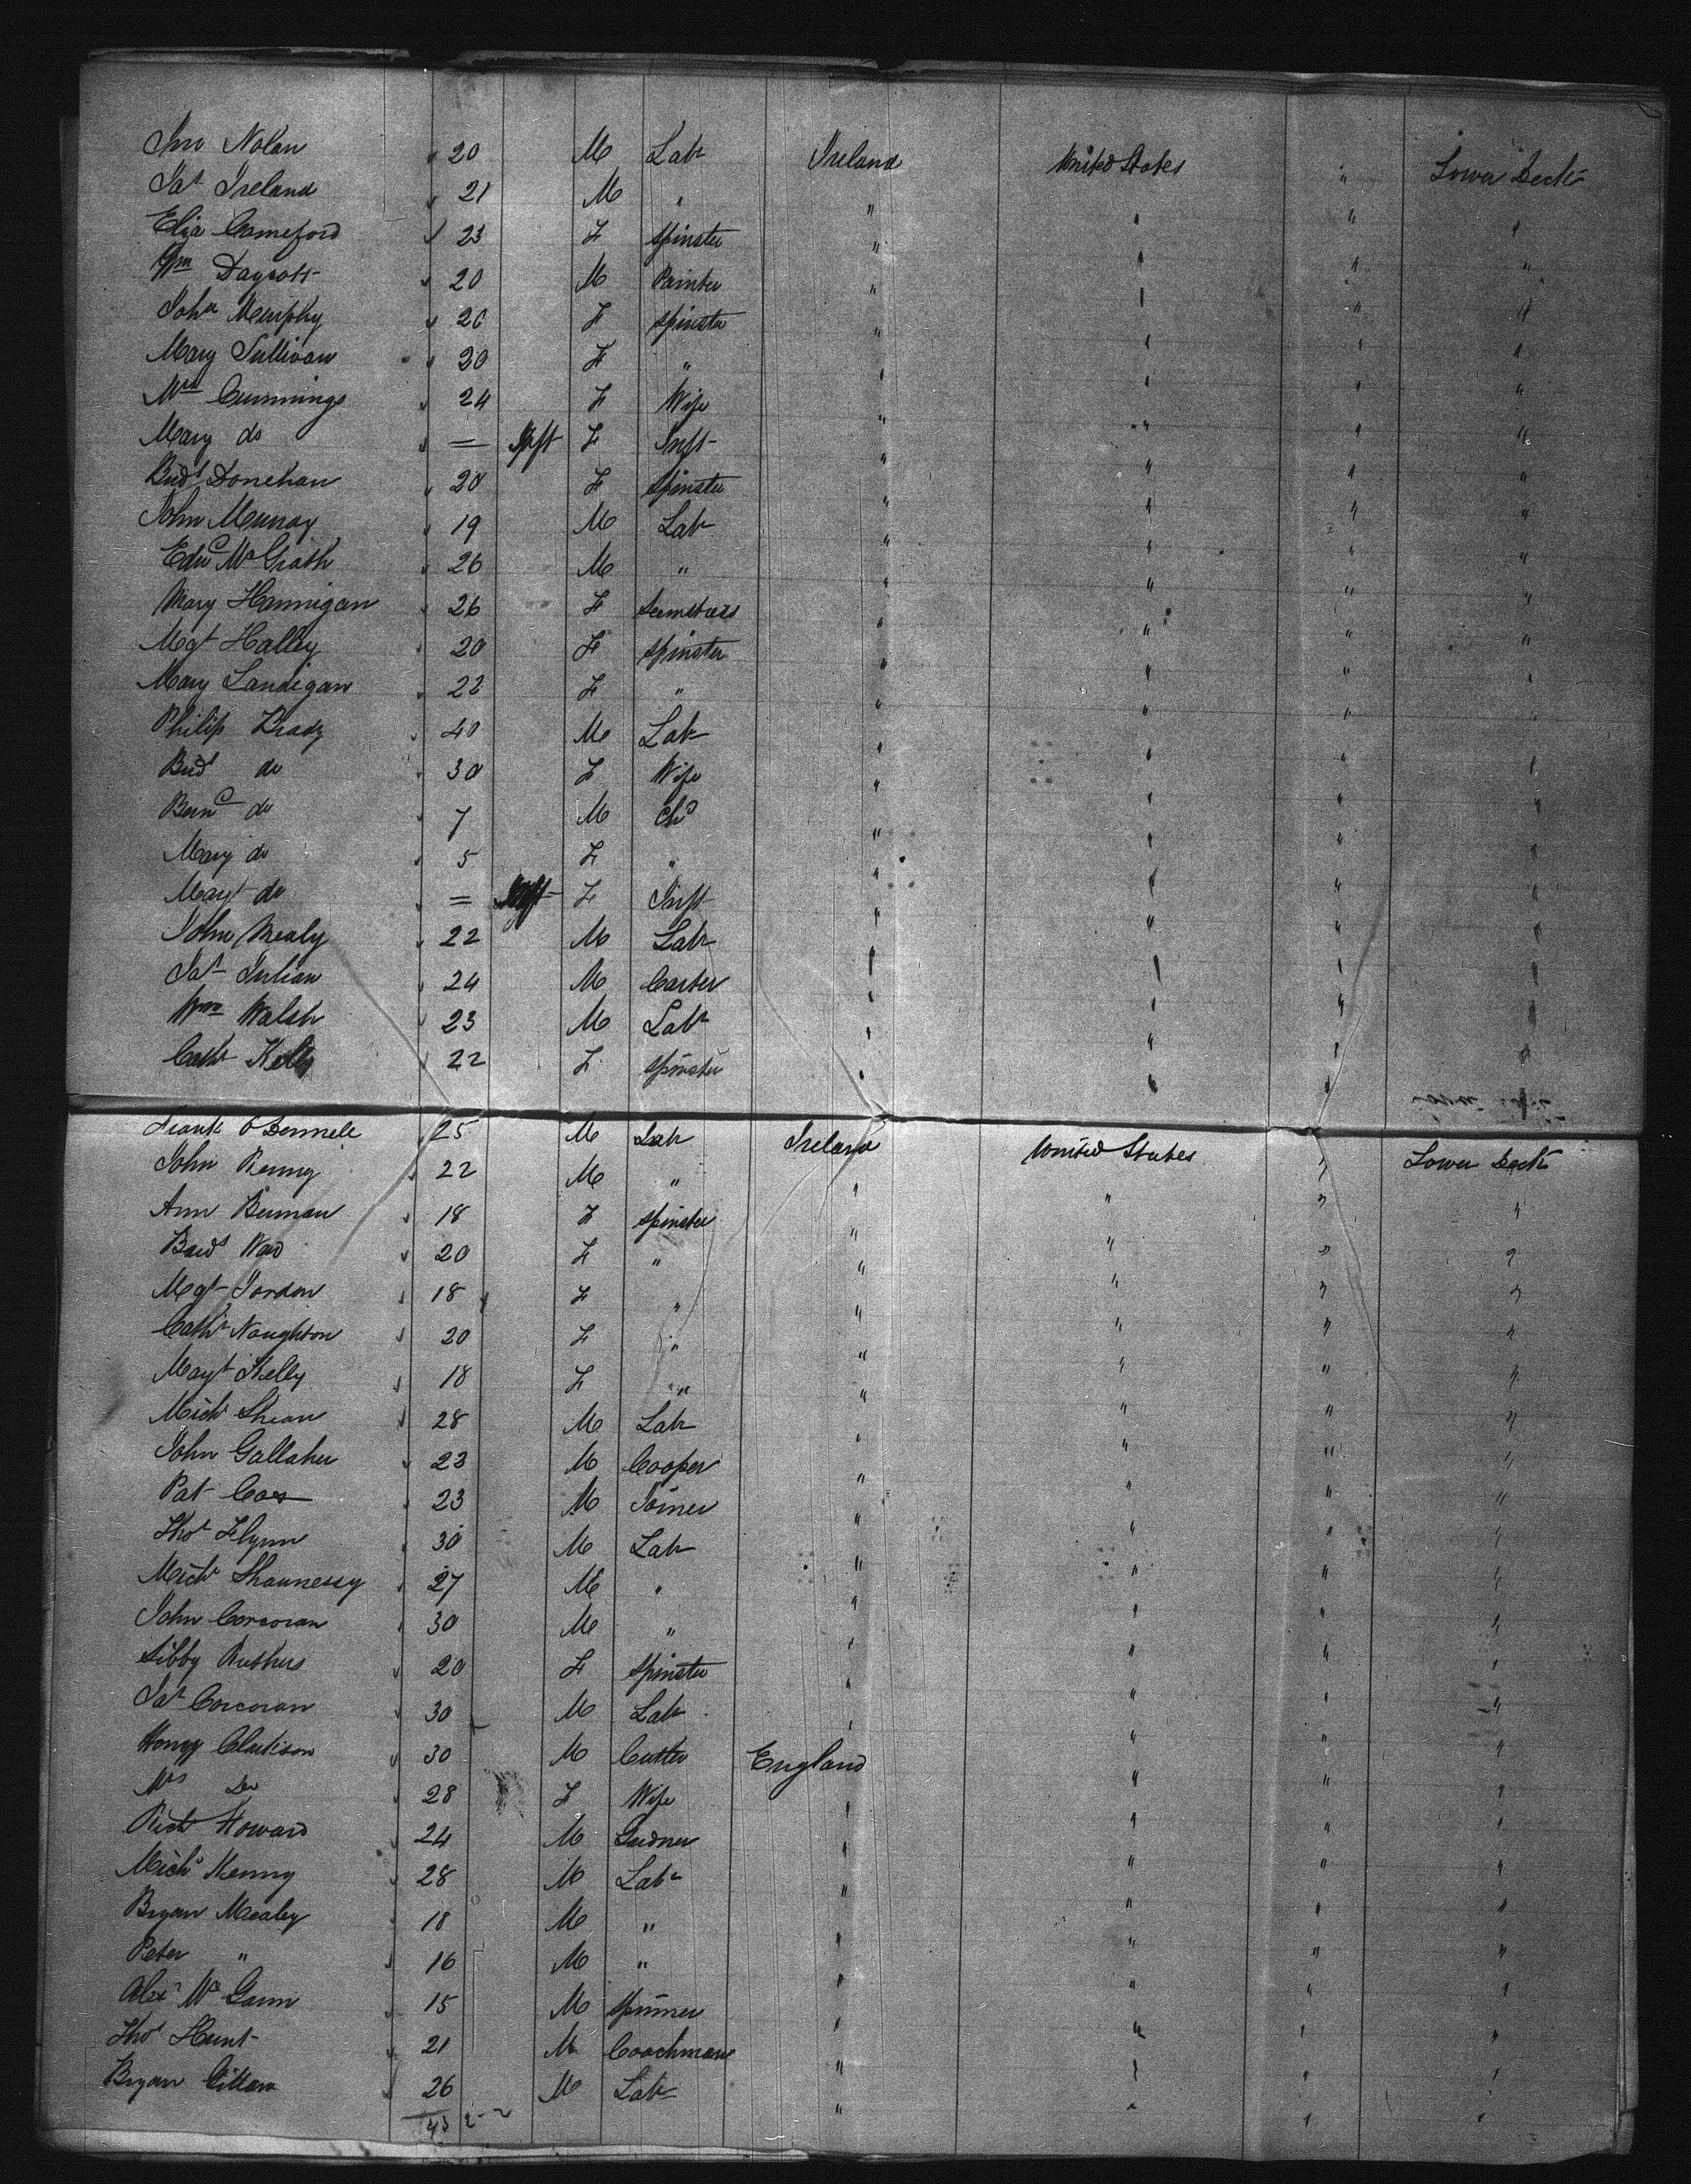 Jno Nolan 20 M Labr Ireland United States " Lower Deck
Jas Ireland 21 M " " " " "
Eliza Comeford 23 F Spinster " " " "
Wm Daycott 20 M Painter " " " "
Joha Murphy 20 F Spinster " " " "
Mary Sullivan 20 F " " " " "
Mrs Cummings 24 F Wife " " " "
Mary do = Inft F Inft " " " "
Bridt Donehan 20 F Spinster " " " "
John Murray 19 M Labr " " " "
Edwd McGrath 26 M " " " " "
Mary Hannigan 26 F Seamstress " " " "
Mgt Halley 20 F Spinster " " " "
Mary Landigan 22 F " " " " "
Philip Brady 40 M Labr " " " "
Bridt do 30 F Wife " " " "
Bernd do 7 M Chd " " " "
Mary do 5 F " " " " "
Margt do = Inft F Inft " " " "
John Mealy 22 M Labr " " " "
Jas Julian 24 M Carter " " " "
Wm Walsh 23 M Labr " " " "
Cath Kelly 22 F Spinster " " " "
Frank O'Donnell 25 M Labr Ireland United States " Lower Deck
John Kenny 22 M " " " " "
Ann Brennan 18 F Spinster " " " "
Bridt Ward 20 F " " " " "
Mgt Jordon 18 F " " " " "
Cathr Naughton 20 F " " " " "
Margt Kelly 18 F " " " " "
Michl Shean 28 M Labr " " " "
John Gallaher 23 M Cooper " " " "
Pat Cox 23 M Joiner " " " "
Thos Flynn 30 M Labr " " " "
Michl Shaunessy 27 M " " " " "
John Corcoran 30 M " " " " "
Sibby 20 F Spinster " " " "
Jas Corcoran 30 M Labr " " " "
Henry Clarkson 30 M Cutter England " " "
Mrs Do 28 F Wife " " " "
Richd Howard 24 M Gardner " " " "
Michl Kenny 28 M Labr " " " "
Bryan Mealey 18 M " " " " "
Peter " 16 M " " " " "
Alexr McGann 15 M Spinner " " " "
Thos Hunt 21 M Coachman " " " "
Bryan Gillan 26 M Labr " " " "
45 2